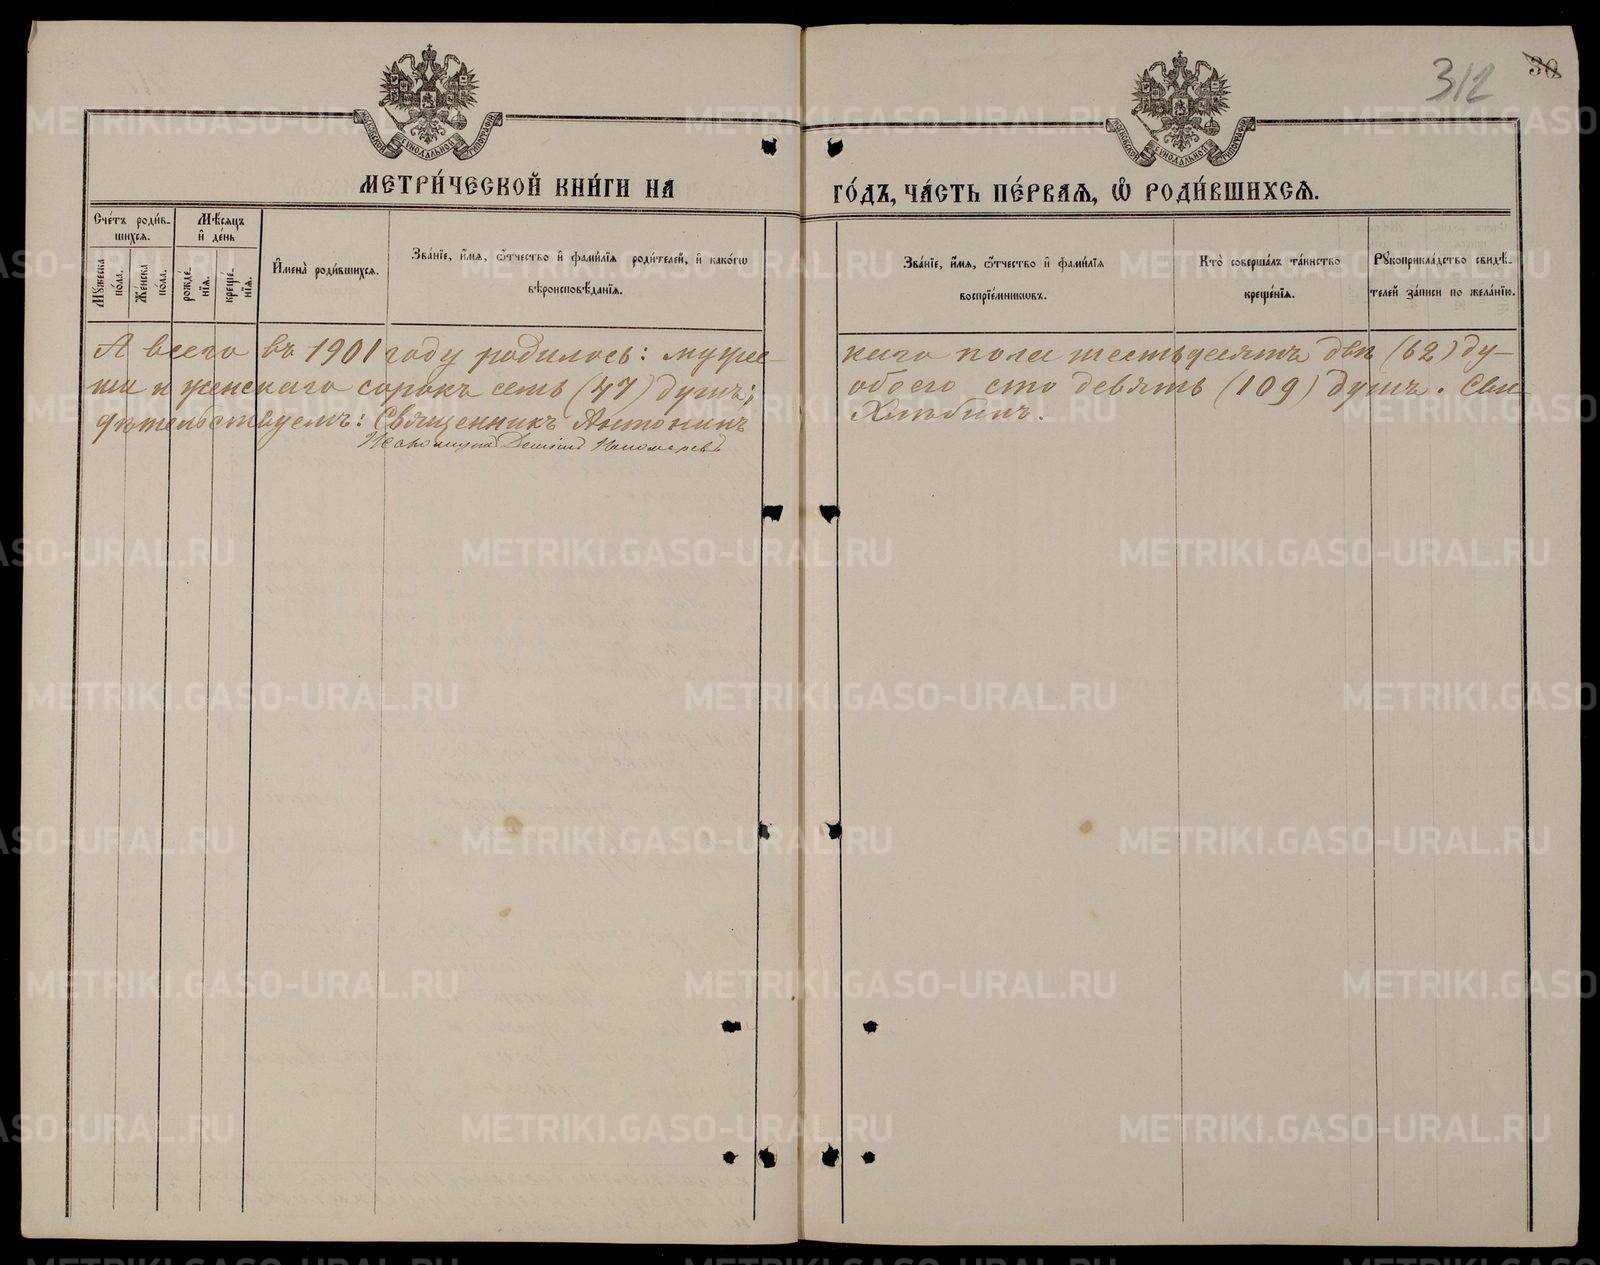 312
30
МОСКОВСКОЙ СѴНОДАЛЬНОЙ ТИПОГРАФІИ
МОСКОВСКОЙ СѴНОДАЛЬНОЙ ТИПОГРАФІИ
МЕТРИ́ЧЕСКОЙ КНИ́ГИ НА
ГО́ДЪ, ЧА́СТЬ ПЕ́РВАѦ, Ѡ҆ РОДИ́ВШИХСѦ.
Сче́тъ роди́в-
шихсѧ.
Мѣ́сѧцъ
и҆ де́нь
Мꙋ́жеска
по́ла.
Же́нска
по́ла.
рожде́-
нїѧ.
креще́-
нїѧ.
И҆мена̀ роди́вшихсѧ.
Зва́нїе, и҆́мѧ, ѻ҆́тчество и҆ фами́лїѧ роди́телей, и҆ како́гѡ
вѣроисповѣ́данїѧ.
Зва́нїе, и҆́мѧ, ѻ҆́тчество и҆ фами́лїѧ
воспрїе́мникѡвъ.
Кто̀ соверша́лъ та́инство
креще́нїѧ.
Рꙋкоприкла́дство свидѣ́-
телей за́писи по жела́нїю.
А всего въ 1901 году родилось: мужес-
каго пола шестьдесятъ два (62) ду-
ши и женскаго сорокъ семь (47) душъ;
обоего сто девять (109) душъ. Сви-
дѣтельствуемъ: Священникъ Антонинъ
Хлѣбинъ.
Псаломщикъ Пономаревъ
METRIKI.GASO-URAL.RU